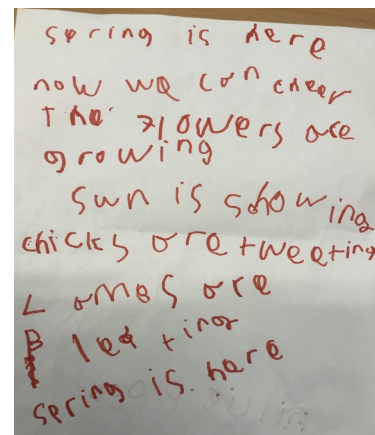 spring is here
now we can cheer
The flowers are
growing
sun is showing
chicks are tweeting
Lambs are
Bleating
spring is here